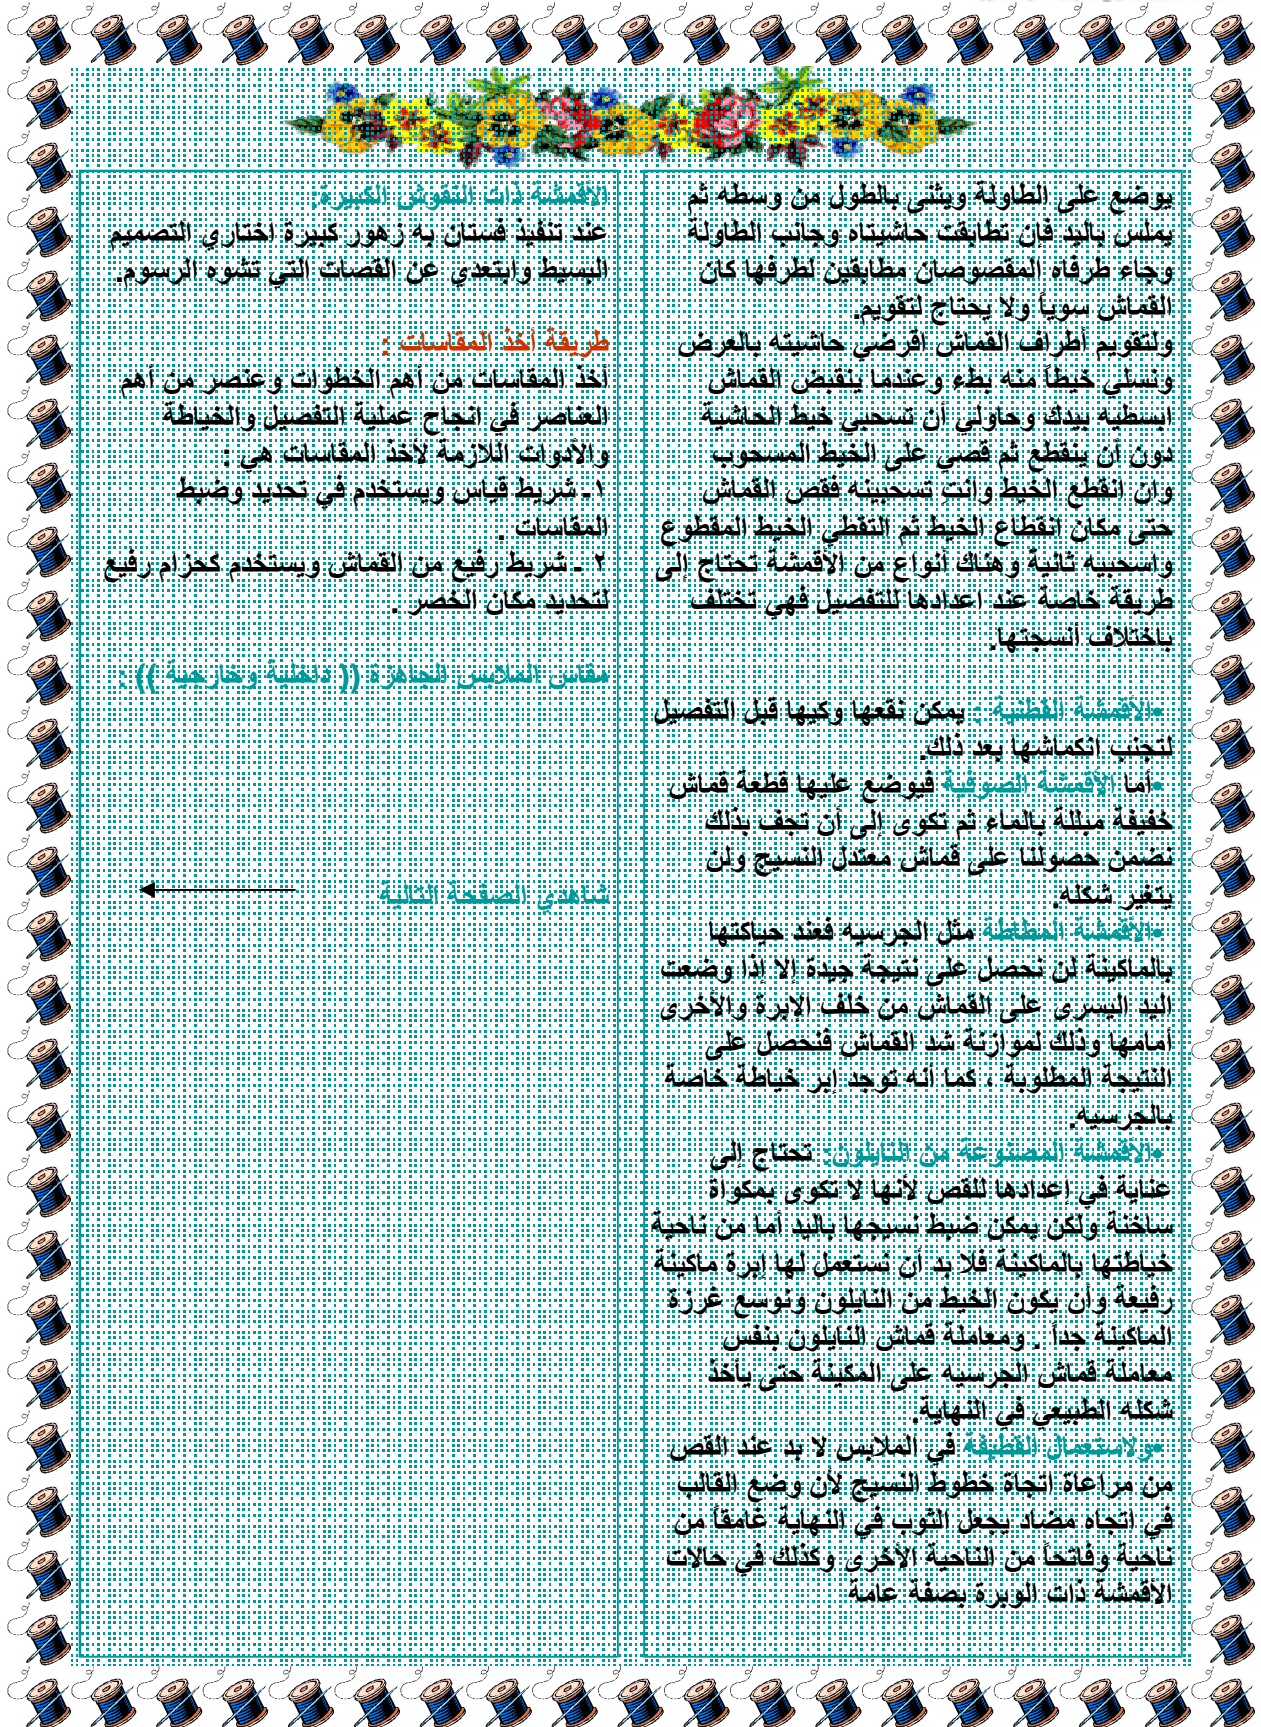 يوضع على الطاولة ويثنى بالطول من وسطه ثم
يملس باليد فإن تطابقت حاشيتاه وجانب الطاولة
وجاء طرفاه المقصوصان مطابقين لطرفها كان
القماش سوياً ولا يحتاج لتقويم.
ولتقويم أطراف القماش اقرضي حاشيته بالعرض
ونسلي خيطاً منه بطء وعندما ينقبض القماش
ابسطيه بيدك وحاولي أن تسحبي خيط الحاشية
دون أن ينقطع ثم قصي على الخيط المسحوب
وإن انقطع الخيط وانتِ تسحبينه فقص القماش
حتى مكان انقطاع الخيط ثم التقطي الخيط المقطوع
واسحبيه ثانية وهناك أنواع من الأقمشة تحتاج إلى
طريقة خاصة عند اعدادها للتفصيل فهي تختلف
باختلاف أنسجتها.
•الأقمشة القطنية : يمكن نقعها وكيها قبل التفصيل
لتجنب انكماشها بعد ذلك.
•أما الأقمشة الصوفية فيوضع عليها قطعة قماش
خفيفة مبللة بالماء ثم تكوى إلى أن تجف بذلك
نضمن حصولنا على قماش معتدل النسيج ولن
يتغير شكله.
•الأقمشة المطاطة مثل الجرسيه فعند حياكتها
بالماكينة لن نحصل على نتيجة جيدة إلا إذا وضعت
اليد اليسرى على القماش من خلف الإبرة والأخرى
أمامها وذلك لموازنة شد القماش فنحصل على
النتيجة المطلوبة ، كما أنه توجد إبر خياطة خاصة
بالجرسيه.
•الأقمشة المصنوعة من النايلون: تحتاج إلى
عناية في اعدادها للقص لأنها لا تكوى بمكواة
ساخنة ولكن يمكن ضبط نسيجها باليد أما من ناحية
خياطتها بالماكينة فلا بد أن نستعمل لها إبرة ماكينة
رفيعة وأن يكون الخيط من النايلون ونوسع غرزة
الماكينة جداً . ومعاملة قماش النايلون بنفس
معاملة قماش الجرسيه على المكينة حتى يأخذ
شكله الطبيعي في النهاية.
•ولاستعمال القطيفة في الملابس لا بد عند القص
من مراعاة اتجاة خطوط النسيج لأن وضع القالب
في اتجاه مضاد يجعل الثوب في النهاية غامقاً من
ناحية وفاتحاً من الناحية الأخرى وكذلك في حالات
الأقمشة ذات الوبرة بصفة عامة
الأقمشة ذات النقوش الكبيرة:
عند تنفيذ فستان به زهور كبيرة اختاري التصميم
البسيط وابتعدي عن القصات التي تشوه الرسوم.
طريقة أخذ المقاسات :
أخذ المقاسات من أهم الخطوات وعنصر من أهم
العناصر في انجاح عملية التفصيل والخياطة
والأدوات اللازمة لأخذ المقاسات هي :
١ـ شريط قياس ويستخدم في تحديد وضبط
المقاسات .
٢ ـ شريط رفيع من القماش ويستخدم كحزام رفيع
لتحديد مكان الخصر .
مقاس الملابس الجاهزة (( داخلية وخارجية )) :
شاهدي الصفحة التالية